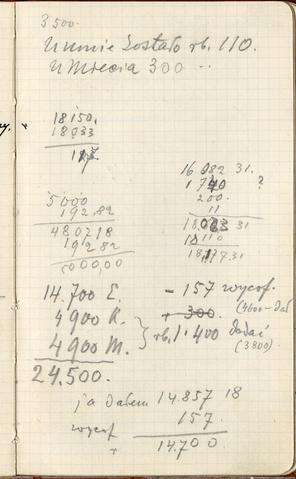 3500.
U mnie zostało rb. 110.
U Miecia 300 --
18150.
18033
117
16082 31.
1740 ?
200.
11
18033 31
110
5000
192,82
480718
19282
5000,00
14.700 E.
4900 K.
4900 M.
24.500.
- 157 wycof.
+ 300. (4600 - dał
rb. 1.400 dodać
(3800)
ja dałem 14.857 18
wycof 157.
+ 14.700